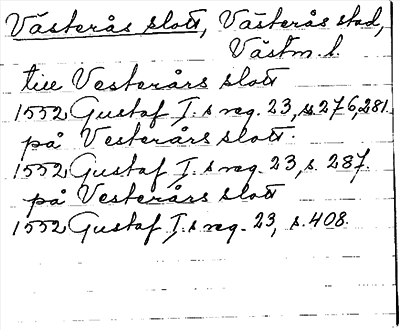 Västerås slott, Västerås stad,
Västm. l.
till Vesterårs slott
1552 Gustaf I.s reg. 23, s. 276, 281.
på Vesterårs slott.
1552 Gustaf I.s reg. 23, s. 287.
på Vesterårs slott
1552 Gustaf I.s reg. 23, s. 408.